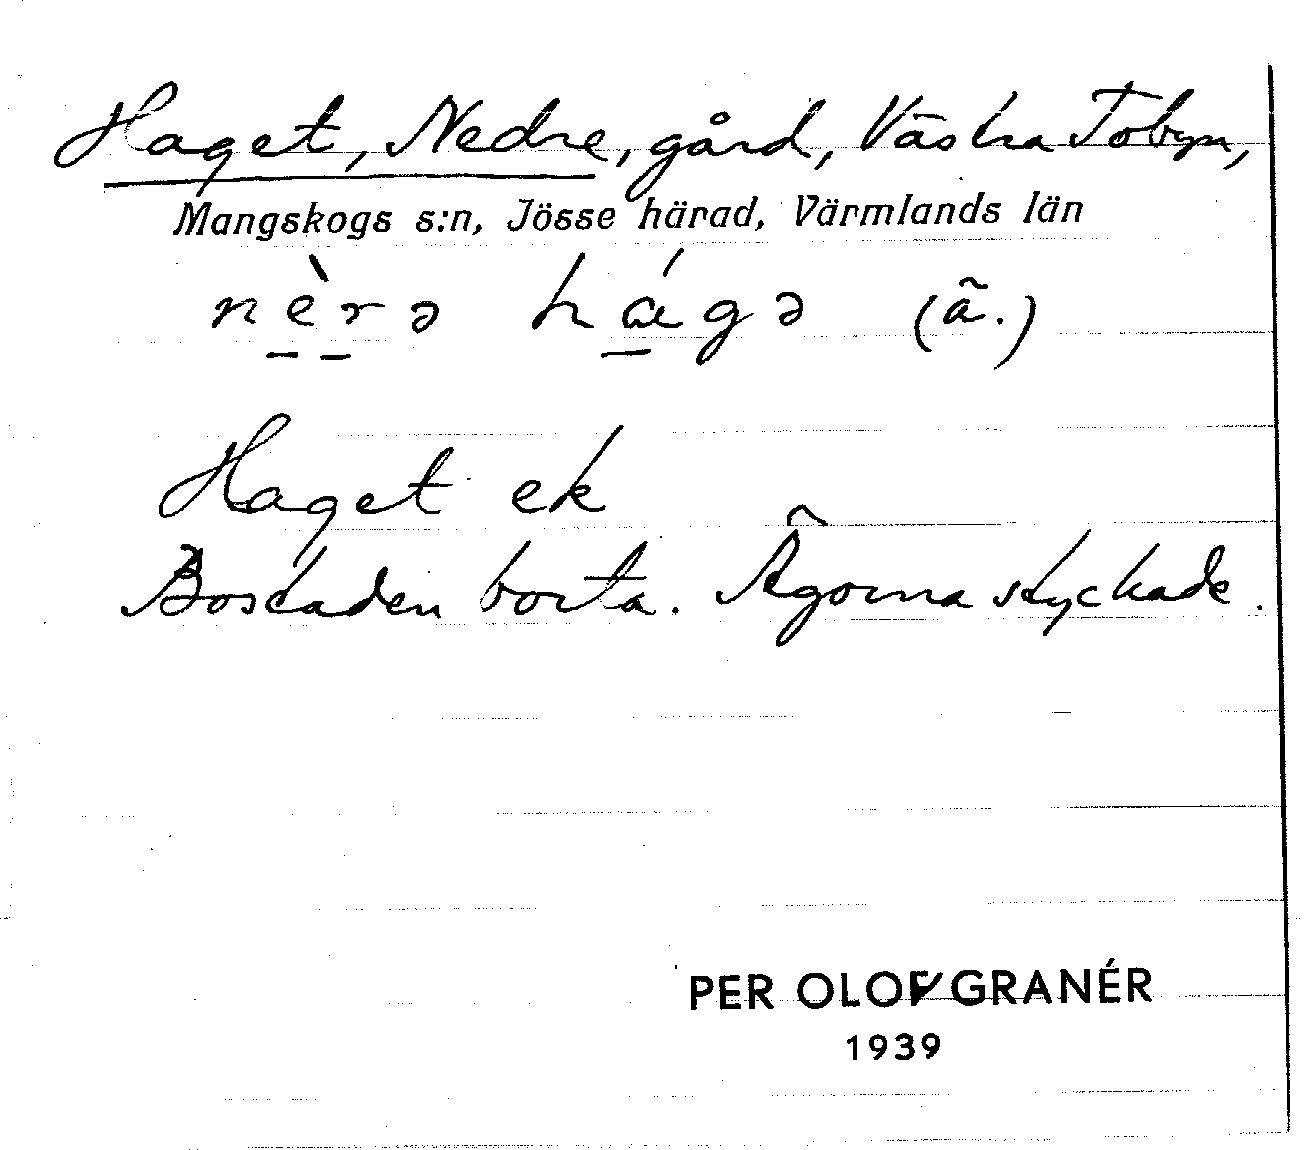 Haget, Nedre, gård, Västra Tobyn,
Mangskogs s:n, Jösse härad, Värmlands län
nè̱ṟə há̱gə (ã.)
Haget ek
Bostaden borta. Ägorna styckade.
PER OLOF GRANÉR
1939